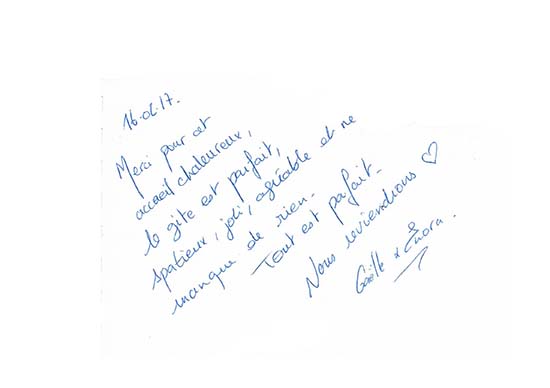 16.04.17.
Merci pour cet
accueil chaleureux,
le gite est parfait,
spatieux, joli, agréable et ne
manque de rien.
Tout est parfait.
Nous reviendrons ♡
Gaëlle x Enora.